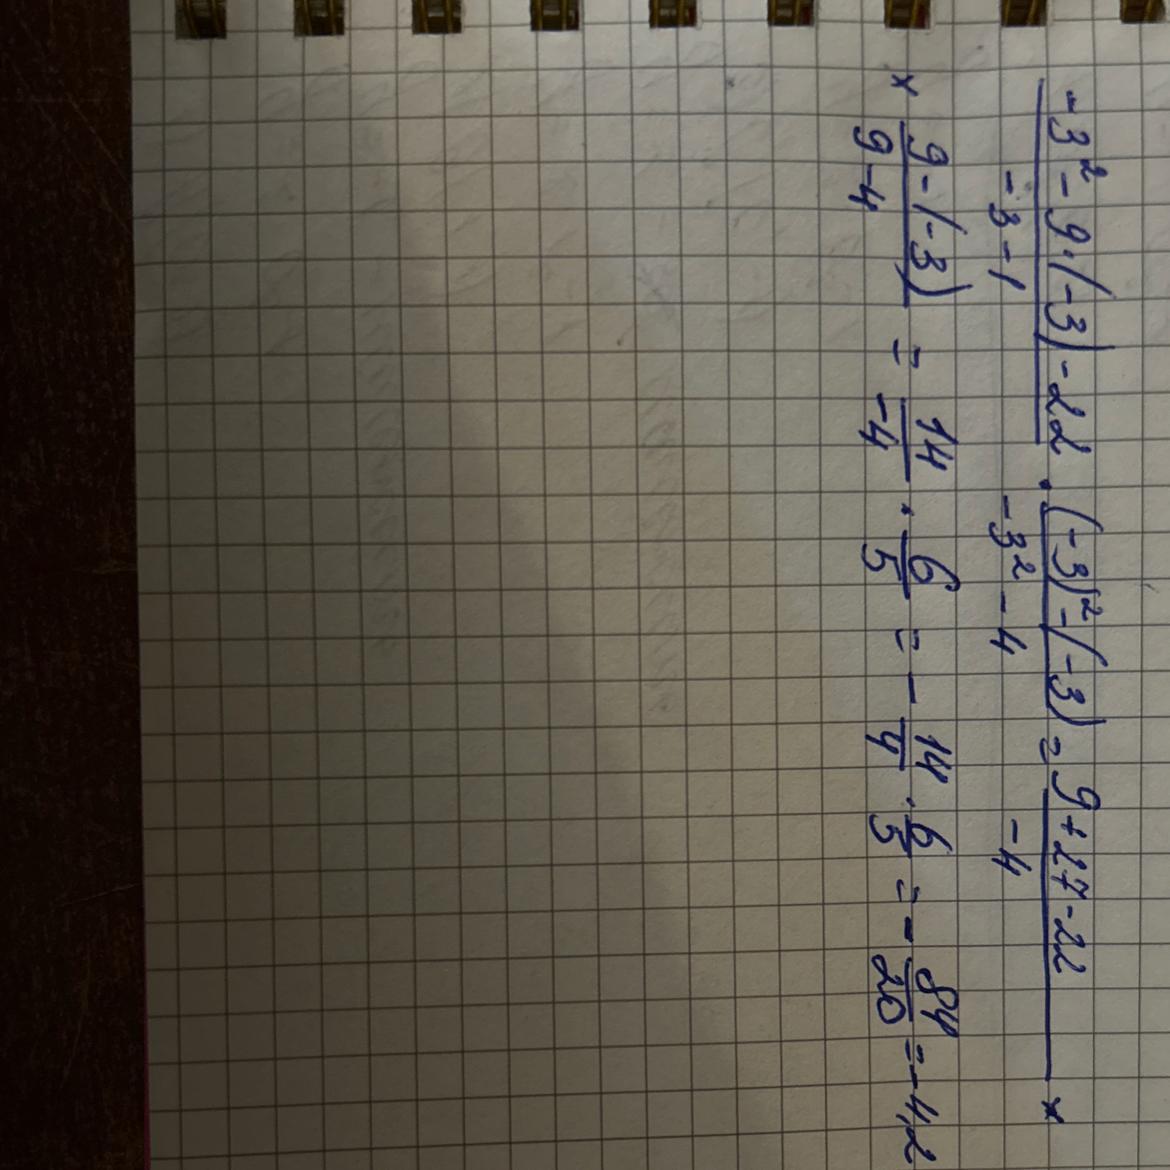 -3² - 9·(-3) - 22 / -3 - 1 · (-3)² - (-3) / -3² - 4 = 9 + 27 - 22 / -4 ×
× 9 - (-3) / 9 - 4 = 14 / -4 · 6 / 5 = - 14 / 4 · 6 / 5 = - 84 / 20 = -4,2